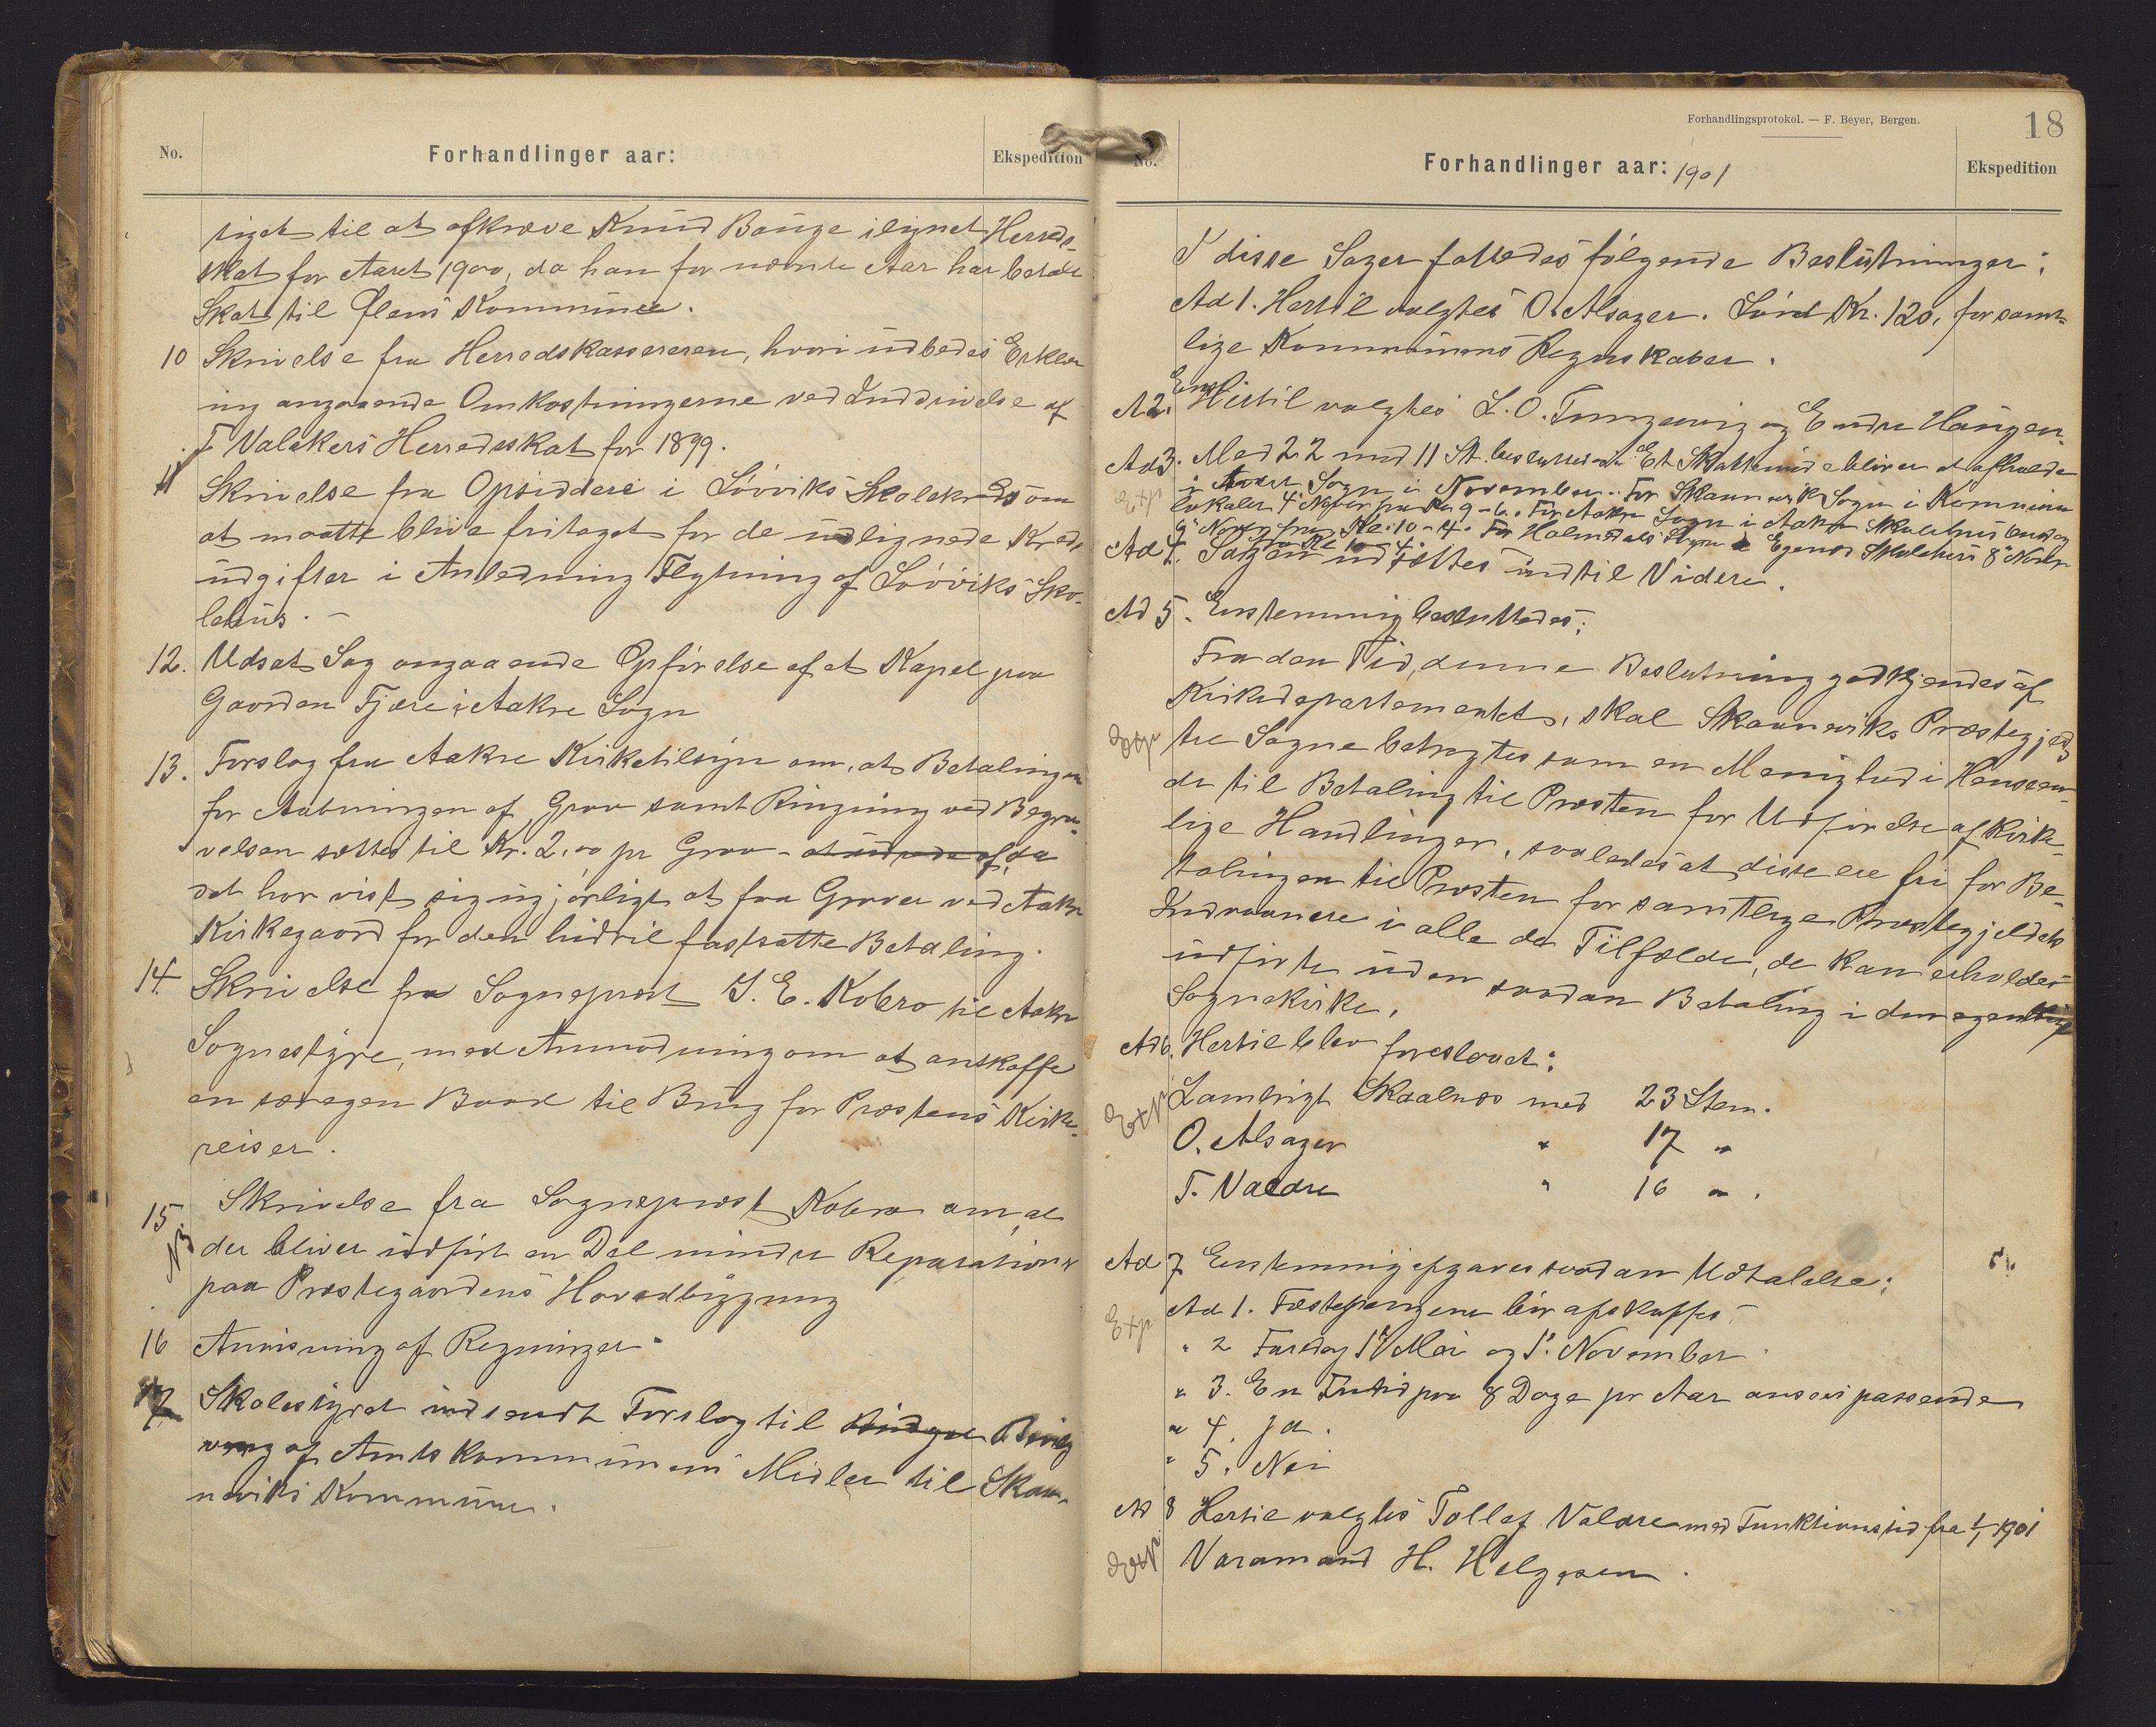 No.
Forhandlinger aar:
Ekspedition
siget til at afkræve Knud Bauge ilignet Herreds-
skat for Aaret 1900, da han for nævnte Aar har betalt
Skat til Ølens Kommune.
10 Skrivelse fra Herredskassereren, hvori udbedes Erklær
ing angaaende Omkostningerne ved Inddrivelse af
T. Valakers Herredsskat for 1899.
11 Skrivelse fra Opsiddere i Løvviks Skolekreds om
at maatte blive fritaget for de udlignede Kreds
udgifter i Anledning Flytning af Løvviks Sko-
lehus. –
12. Udsat Sag angaaende Opførelse af et Kapel paa
Gaarden Fjære i Aakre Sogn
13. Forslag fra Aakre Kirketilsyn om, at Betalingen
for Aabningen af Grav samt Ringning ved Begra-
velsen sættes til Kr. 2,00 pr Grav – da
det har vist sig ugjørligt at faa Graver ved Aakre
Kirkegaard for den hidtil fastsatte Betaling.
14. Skrivelse fra Sogneprest J. E. Kobro til Aakre
Sognestyre, med Anmodning om at anskaffe
en særegen Baad til Brug for Præstens Kirke-
reiser.
15. Skrivelse fra Sogneprest Kobro om, at
NB der bliver udført en Del mindre Reparationer
paa Præstegaardens Hovedbygning
16 Anvisning af Regninger
17 Skolestyret indsendt Forslag til Bevilg
ning af Amtskommunens Midler til Skaa-
neviks Kommune.
Forhandlingsprotokol. — F. Beyer, Bergen.
18
No.
Forhandlinger aar: 1901
Ekspedition
I disse Sager fattedes følgende Beslutninger:
Ad 1. Hertil valgtes O. Alsager. Løn Kr. 120, for samt-
lige Kommunens Regnskaber.
Enst
A 2. Hertil valgtes L. O. Tungesvig og Endre Haugen.
Ad 3. Med 22 mod 11 St. besluttedes: Et Skattemøde bliver at afholde
Exp i hvert Sogn i November. For Skaanevik Sogn i Kommune
lokalet 4 Novbr fra Kl 9-6. For Aakre Sogn i Aakre Skolehus
9 Novbr fra Kl. 10-4. For Holmedals Sogn i Egenes Skolehus 8 Novbr
fra Kl 10-4.
Ad 4. Sagen udsættes indtil Videre.
Ad 5. Enstemmig besluttedes:
Fra den Tid, denne Beslutning godkjendes af
Kirkedepartementet, skal Skaaneviks Præstegjelds
Exp tre Sogne betragtes som en Menighed i Henseen-
de til Betaling til Præsten for Udførelse af kirke-
lige Handlinger, saaledes at disse ere fri for Be-
talingen til Præsten for samtlige Præstegjeldets
Indvaanere i alle de Tilfælde, de kan erholdes
udførte uden saadan Betaling i den
Sognekirke.
Ad 6. Hertil blev foreslaaet:
Exp Lambrigt Skaalnes med 23 Stem.
O. Alsager " 17 "
T. Valdre " 16 " .
Ad 7 Enstemmig afgaves saadan Udtalelse:
Exp Ad 1. Fæstepengene bør afskaffes
" 2 Faredag 1 Mai og 1 November
" 3. En Fritid paa 8 Dage pr Aar ansees passende
" 4. Ja.
" 5. Nei
Ad 8 Hertil valgtes Tollef Valdre med Funktionstid fra 1/1 1901
Exp Varamand H. Helgesen.